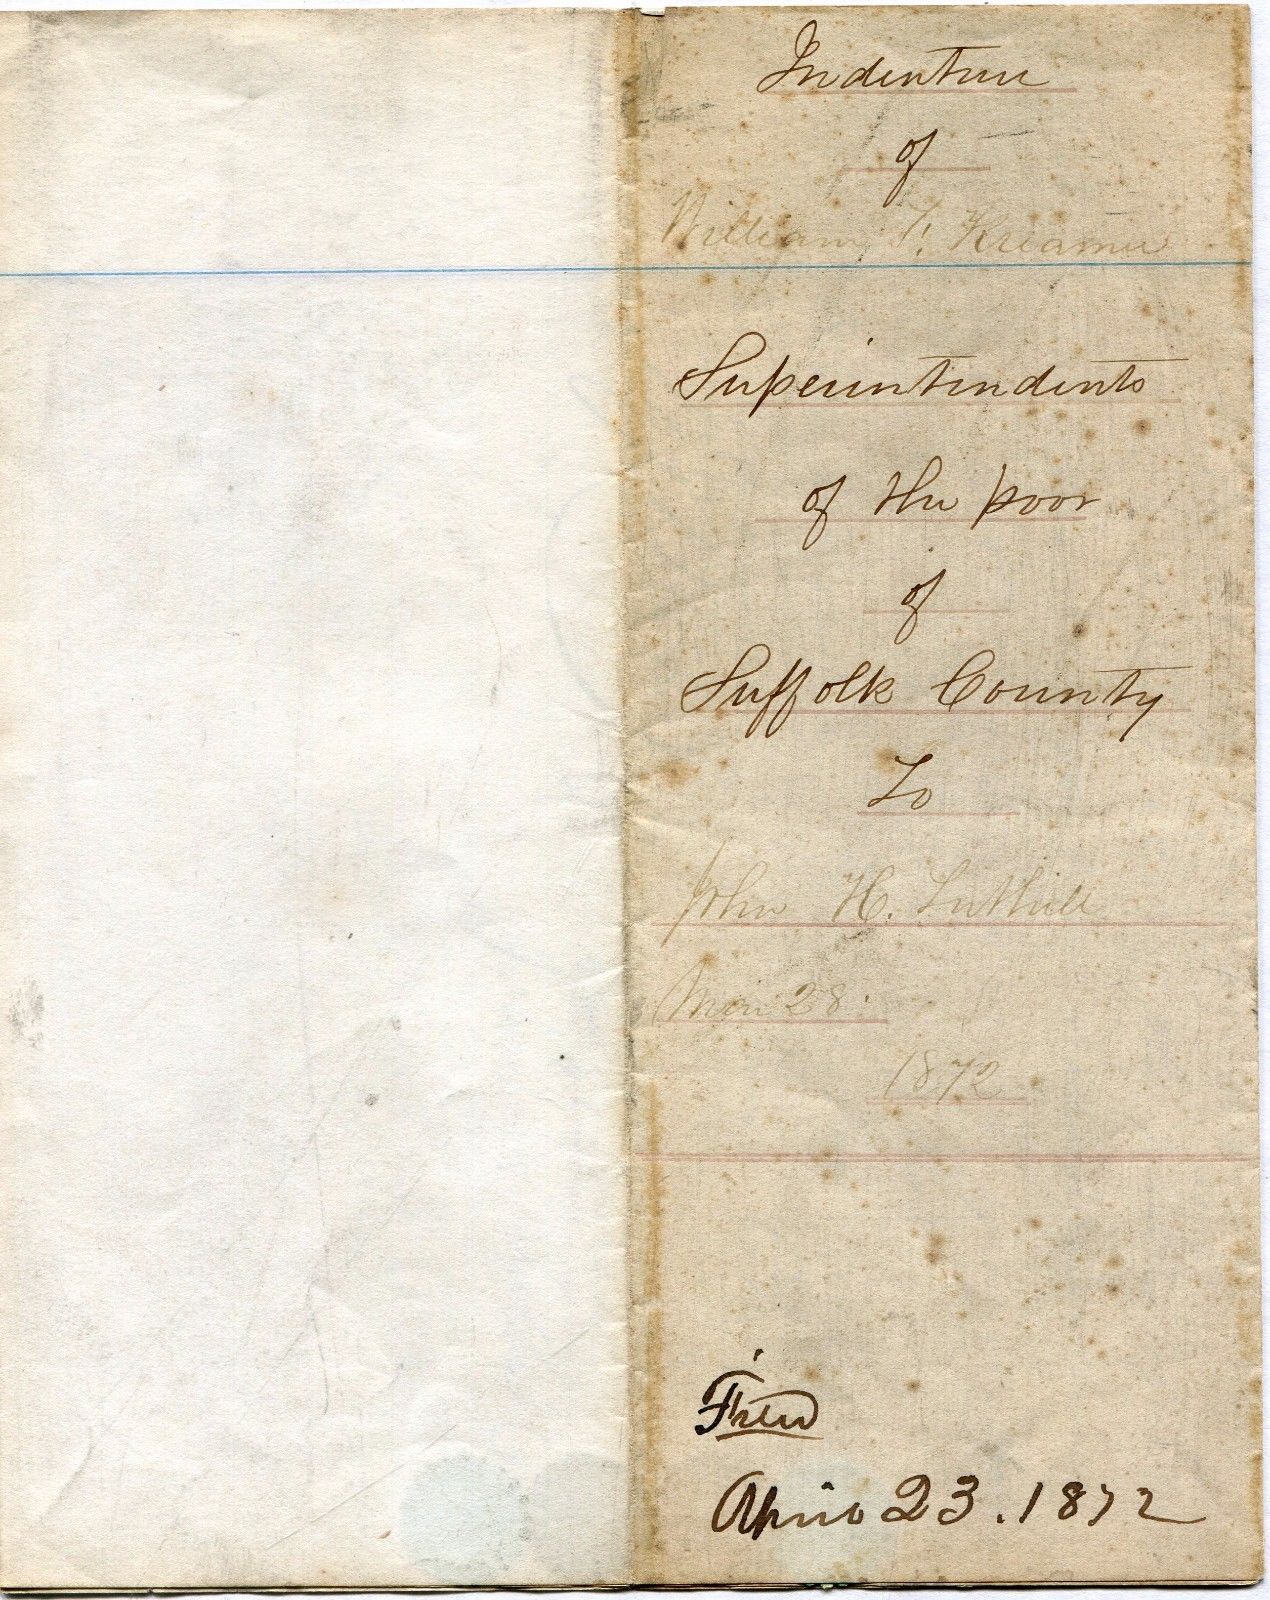 Indenture
of
William T. Kreamer
Superintendents
of the poor
of
Suffolk County
To
John H. Tuthill
Mar 28.
1872
Filed
April 23. 1872